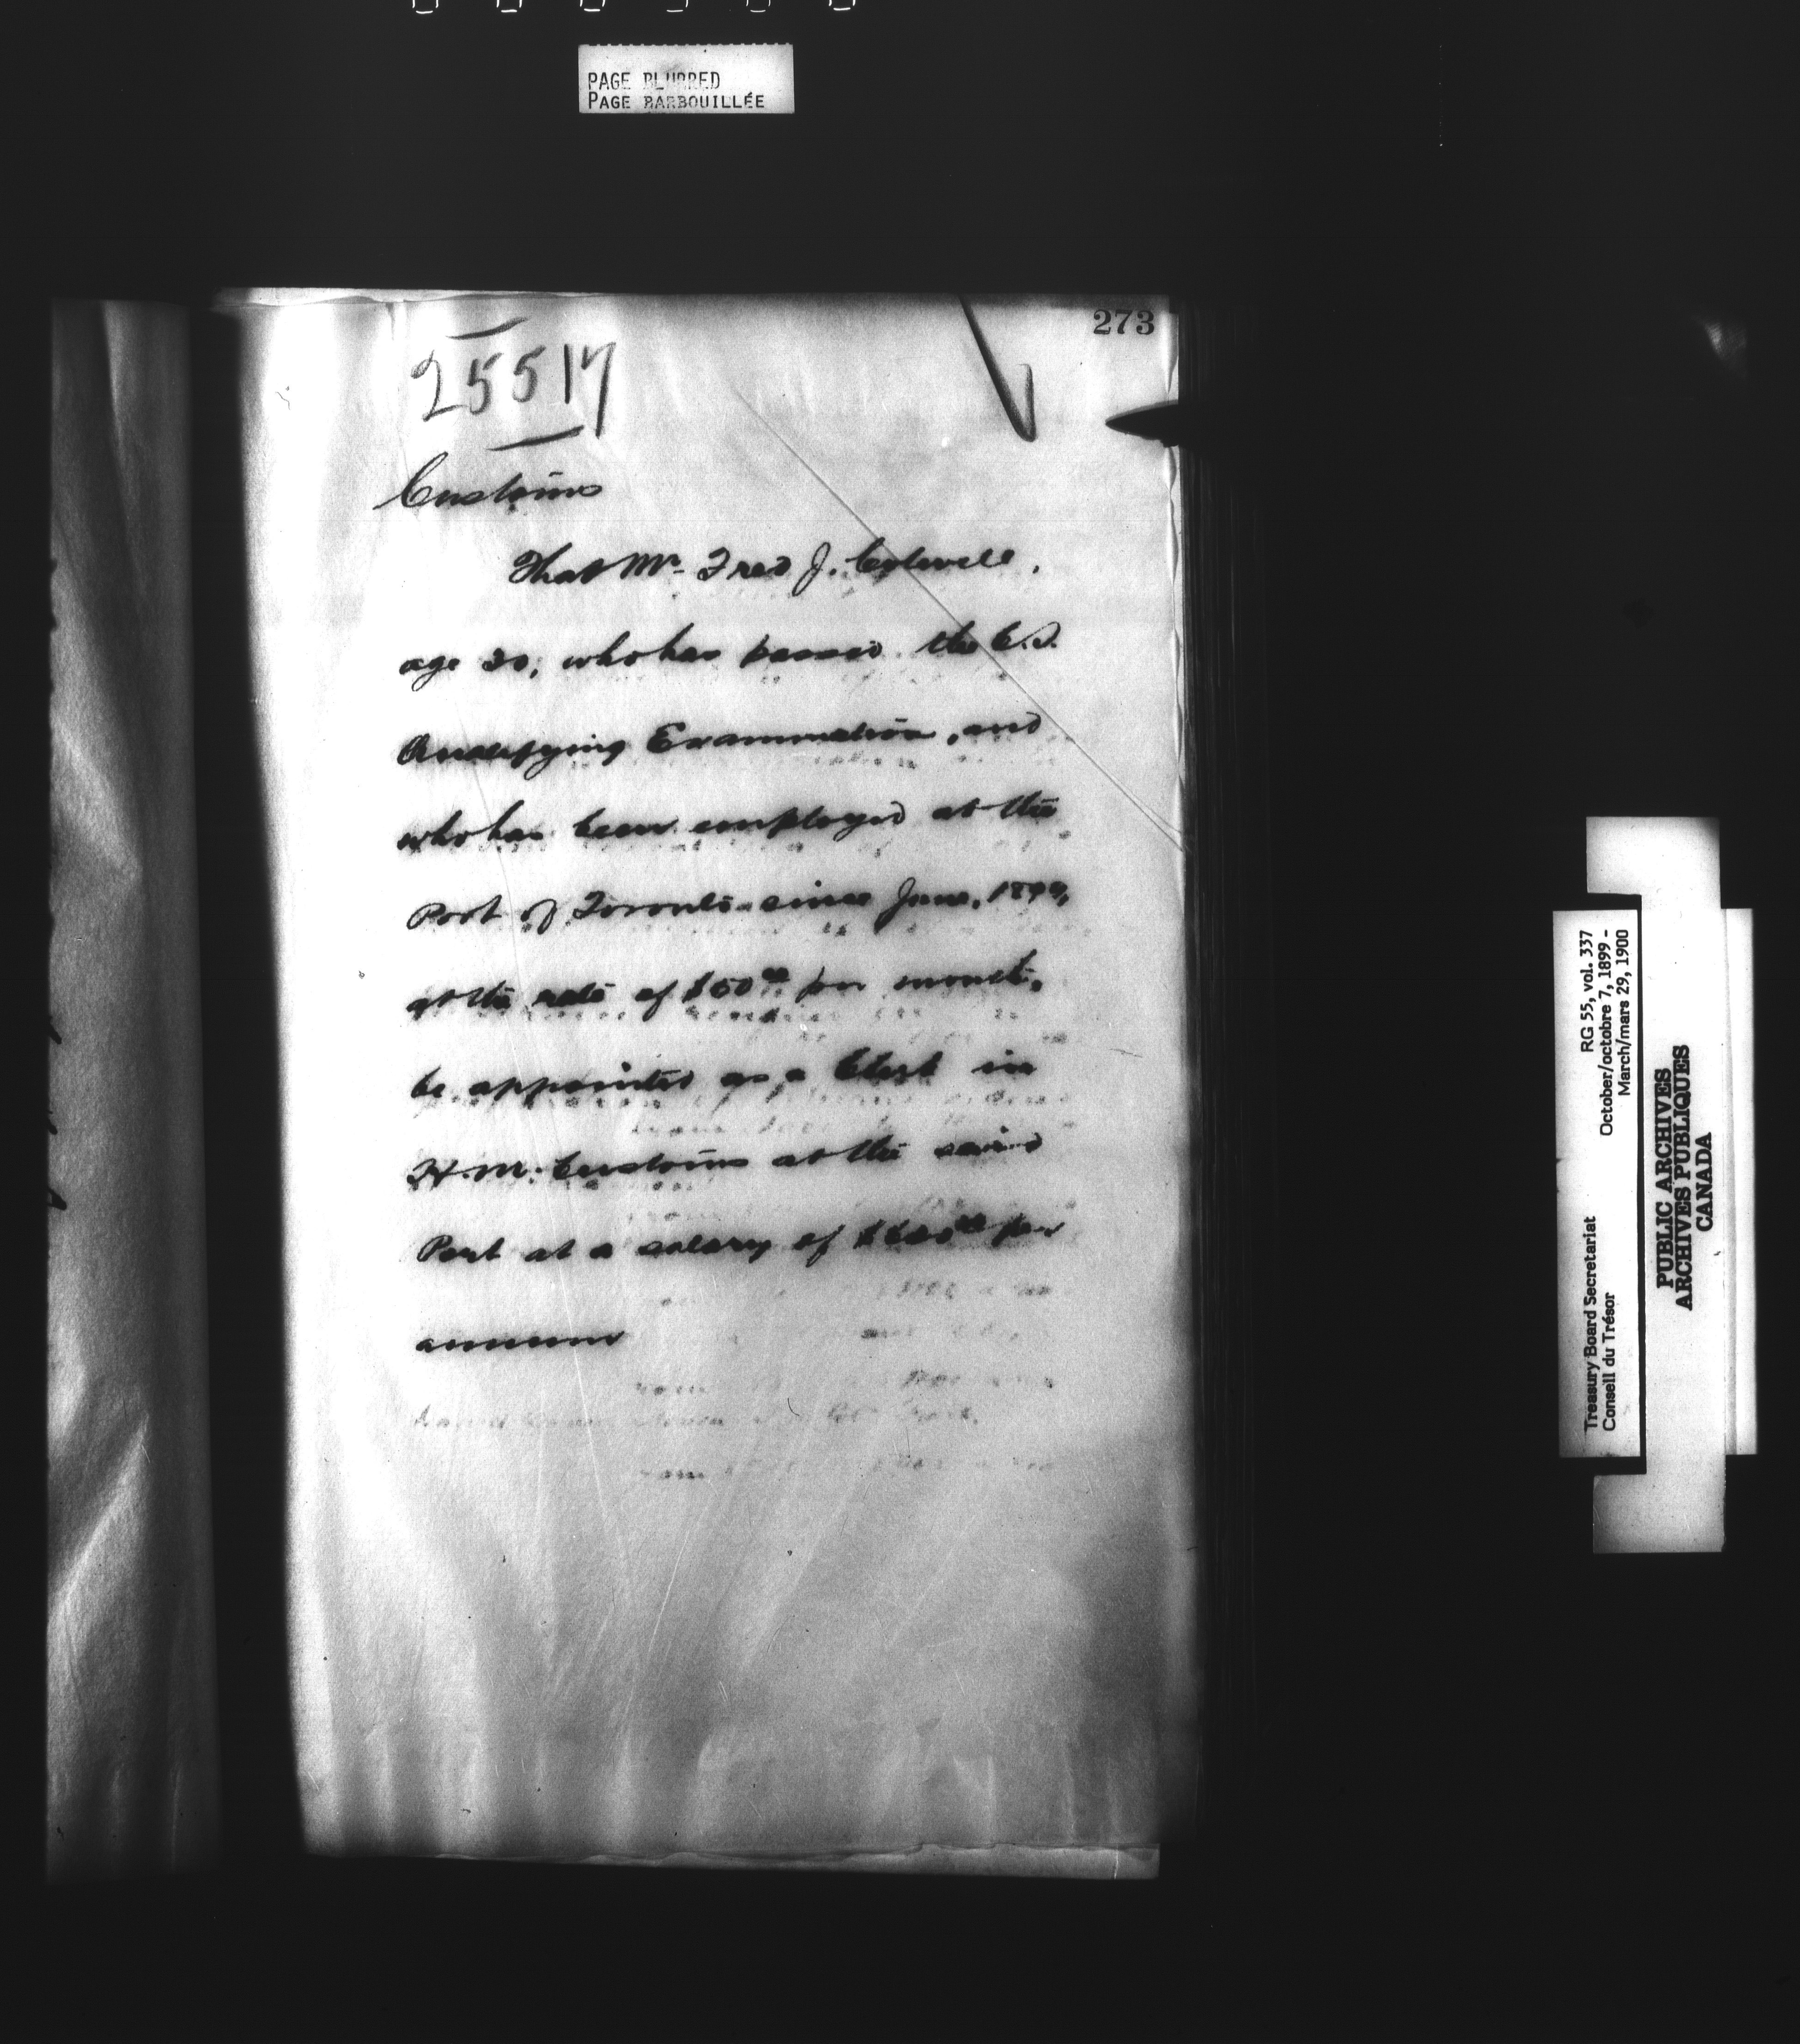 PAGE BLURRED
PAGE BARBOUILLÉE
273
25517
Customs
That Mr. Fred J. Colwell,
age 30, who has passed the C.S.
Qualifying Examination, and
who has been employed at the
Port of Toronto since June, 1899,
at the rate of $50 00 per month,
be appointed as a Clerk in
H.M. Customs at the said
Port at a salary of $600 00 per
annum
Treasury Board Secretariat RG 55, vol. 337
Conseil du Trésor October/octobre 7, 1899 -
March/mars 29, 1900
PUBLIC ARCHIVES
ARCHIVES PUBLIQUES
CANADA